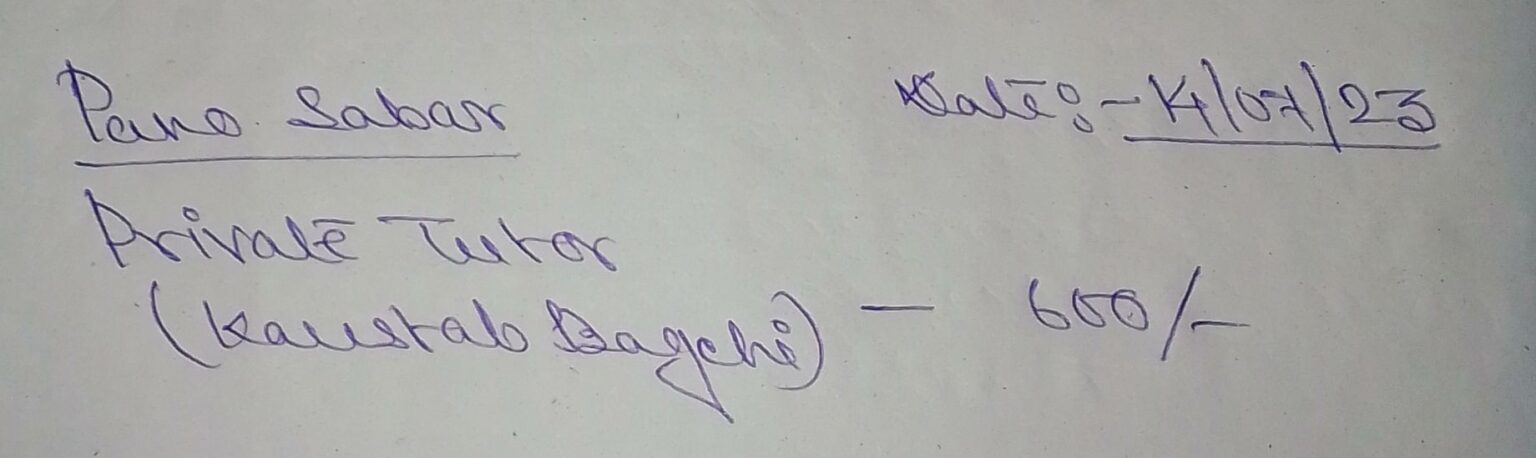 Pano Sabar
Date:- 14/07/23
Private Tutor
(Kaustab Bagchi) - 600/-